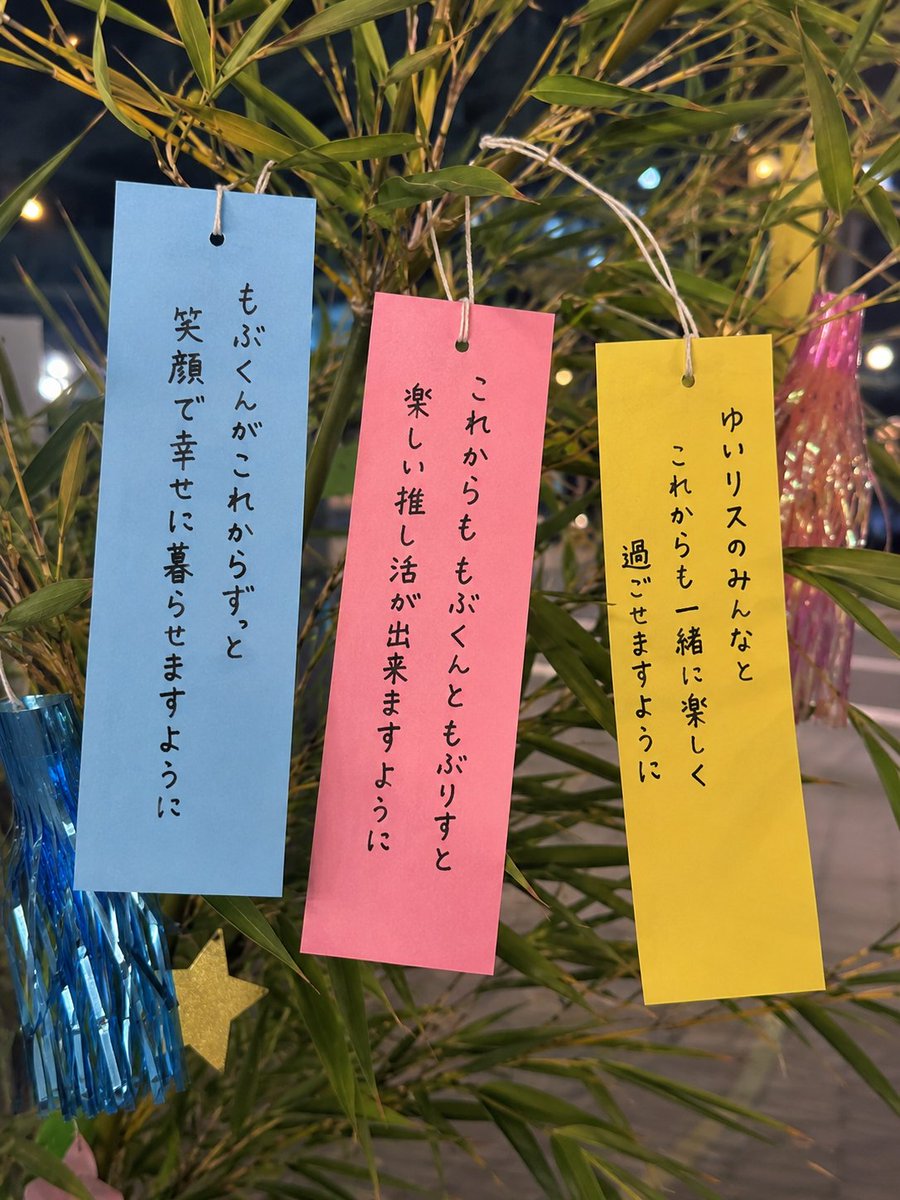 もぶくんがこれからずっと
笑顔で幸せに暮らせますように
これからももぶくんともぶりすと
楽しい推し活が出来ますように
ゆいリスのみんなと
これからも一緒に楽しく
過ごせますように